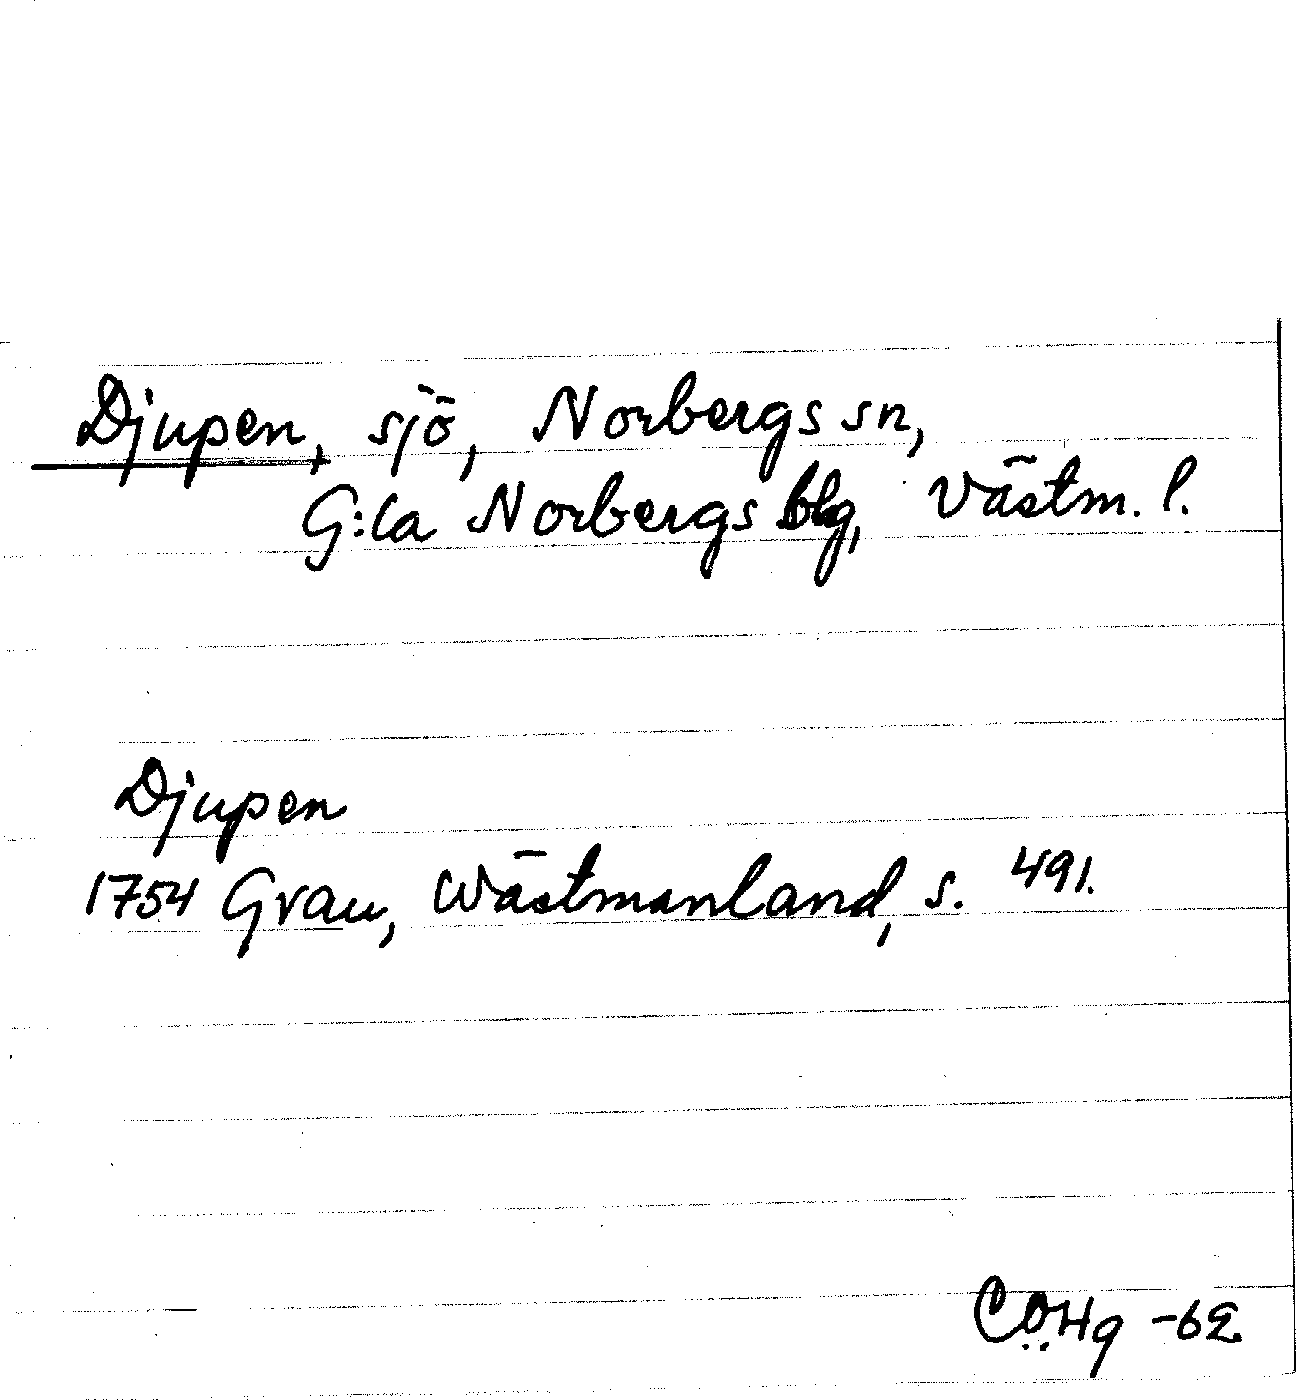 Djupen, sjö, Norbergs sn,
G:la Norbergs blg, Västm. l.
Djupen
1754 Grau, Wästmanland, s. 491.
CÖHg -62